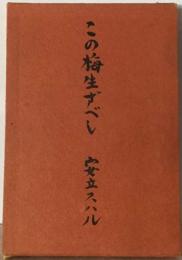 この梅生ずべし
安立スハル